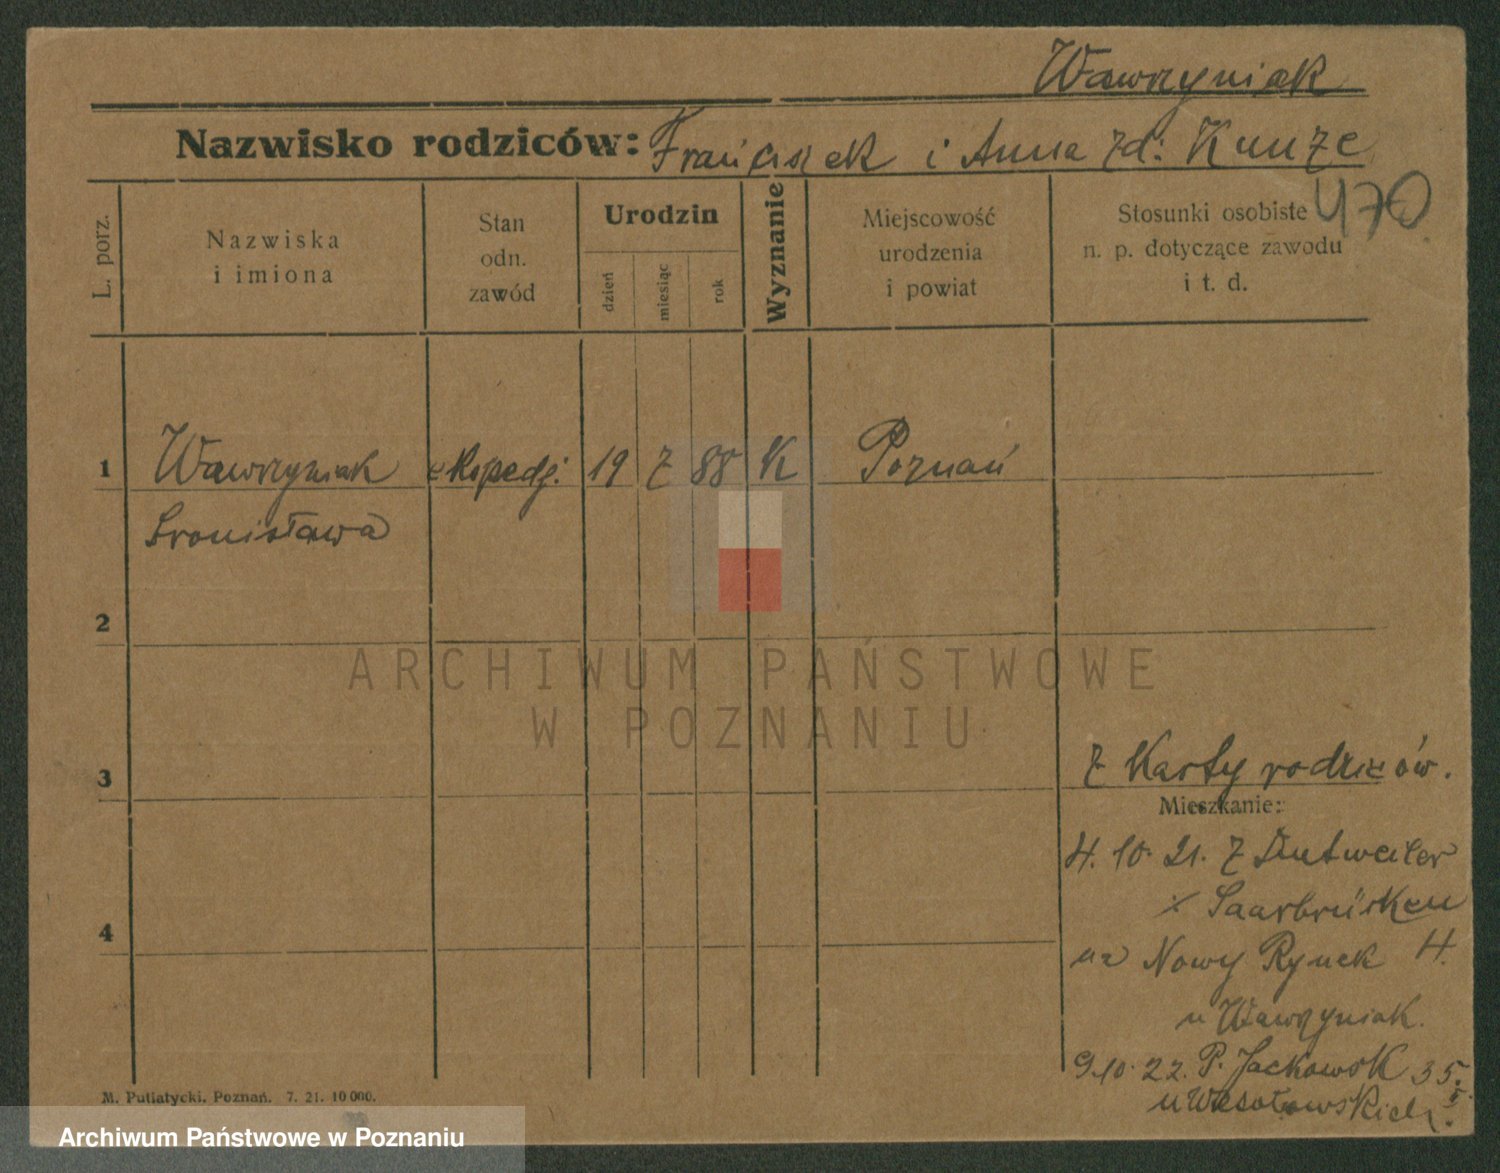 Wawrzyniak
Nazwisko rodziców: Franciszek i Anna zd: Kunze
470
L. porz.
Nazwiska
i imiona
Stan
odn.
zawód
Urodzin
dzień
miesiąc
rok
Wyznanie
Miejscowość
urodzenia
i powiat
Stosunki osobiste
n. p. dotyczące zawodu
i t. d.
1 Wawrzyniak ekspedj. 19 7 88 K Poznań
Bronisława
2
ARCHIWUM PAŃSTWOWE
W POZNANIU
3
z Karty rodziców.
Mieszkanie:
4. 10. 21. z Dutweiler
x Saarbrüsken
4
na Nowy Rynek 4.
u Wawrzyniak.
9.10.22. P. Jackowsk 35.
u Wesołowskich
M. Putiatycki, Poznań. 7. 21. 10 000.
Archiwum Państwowe w Poznaniu